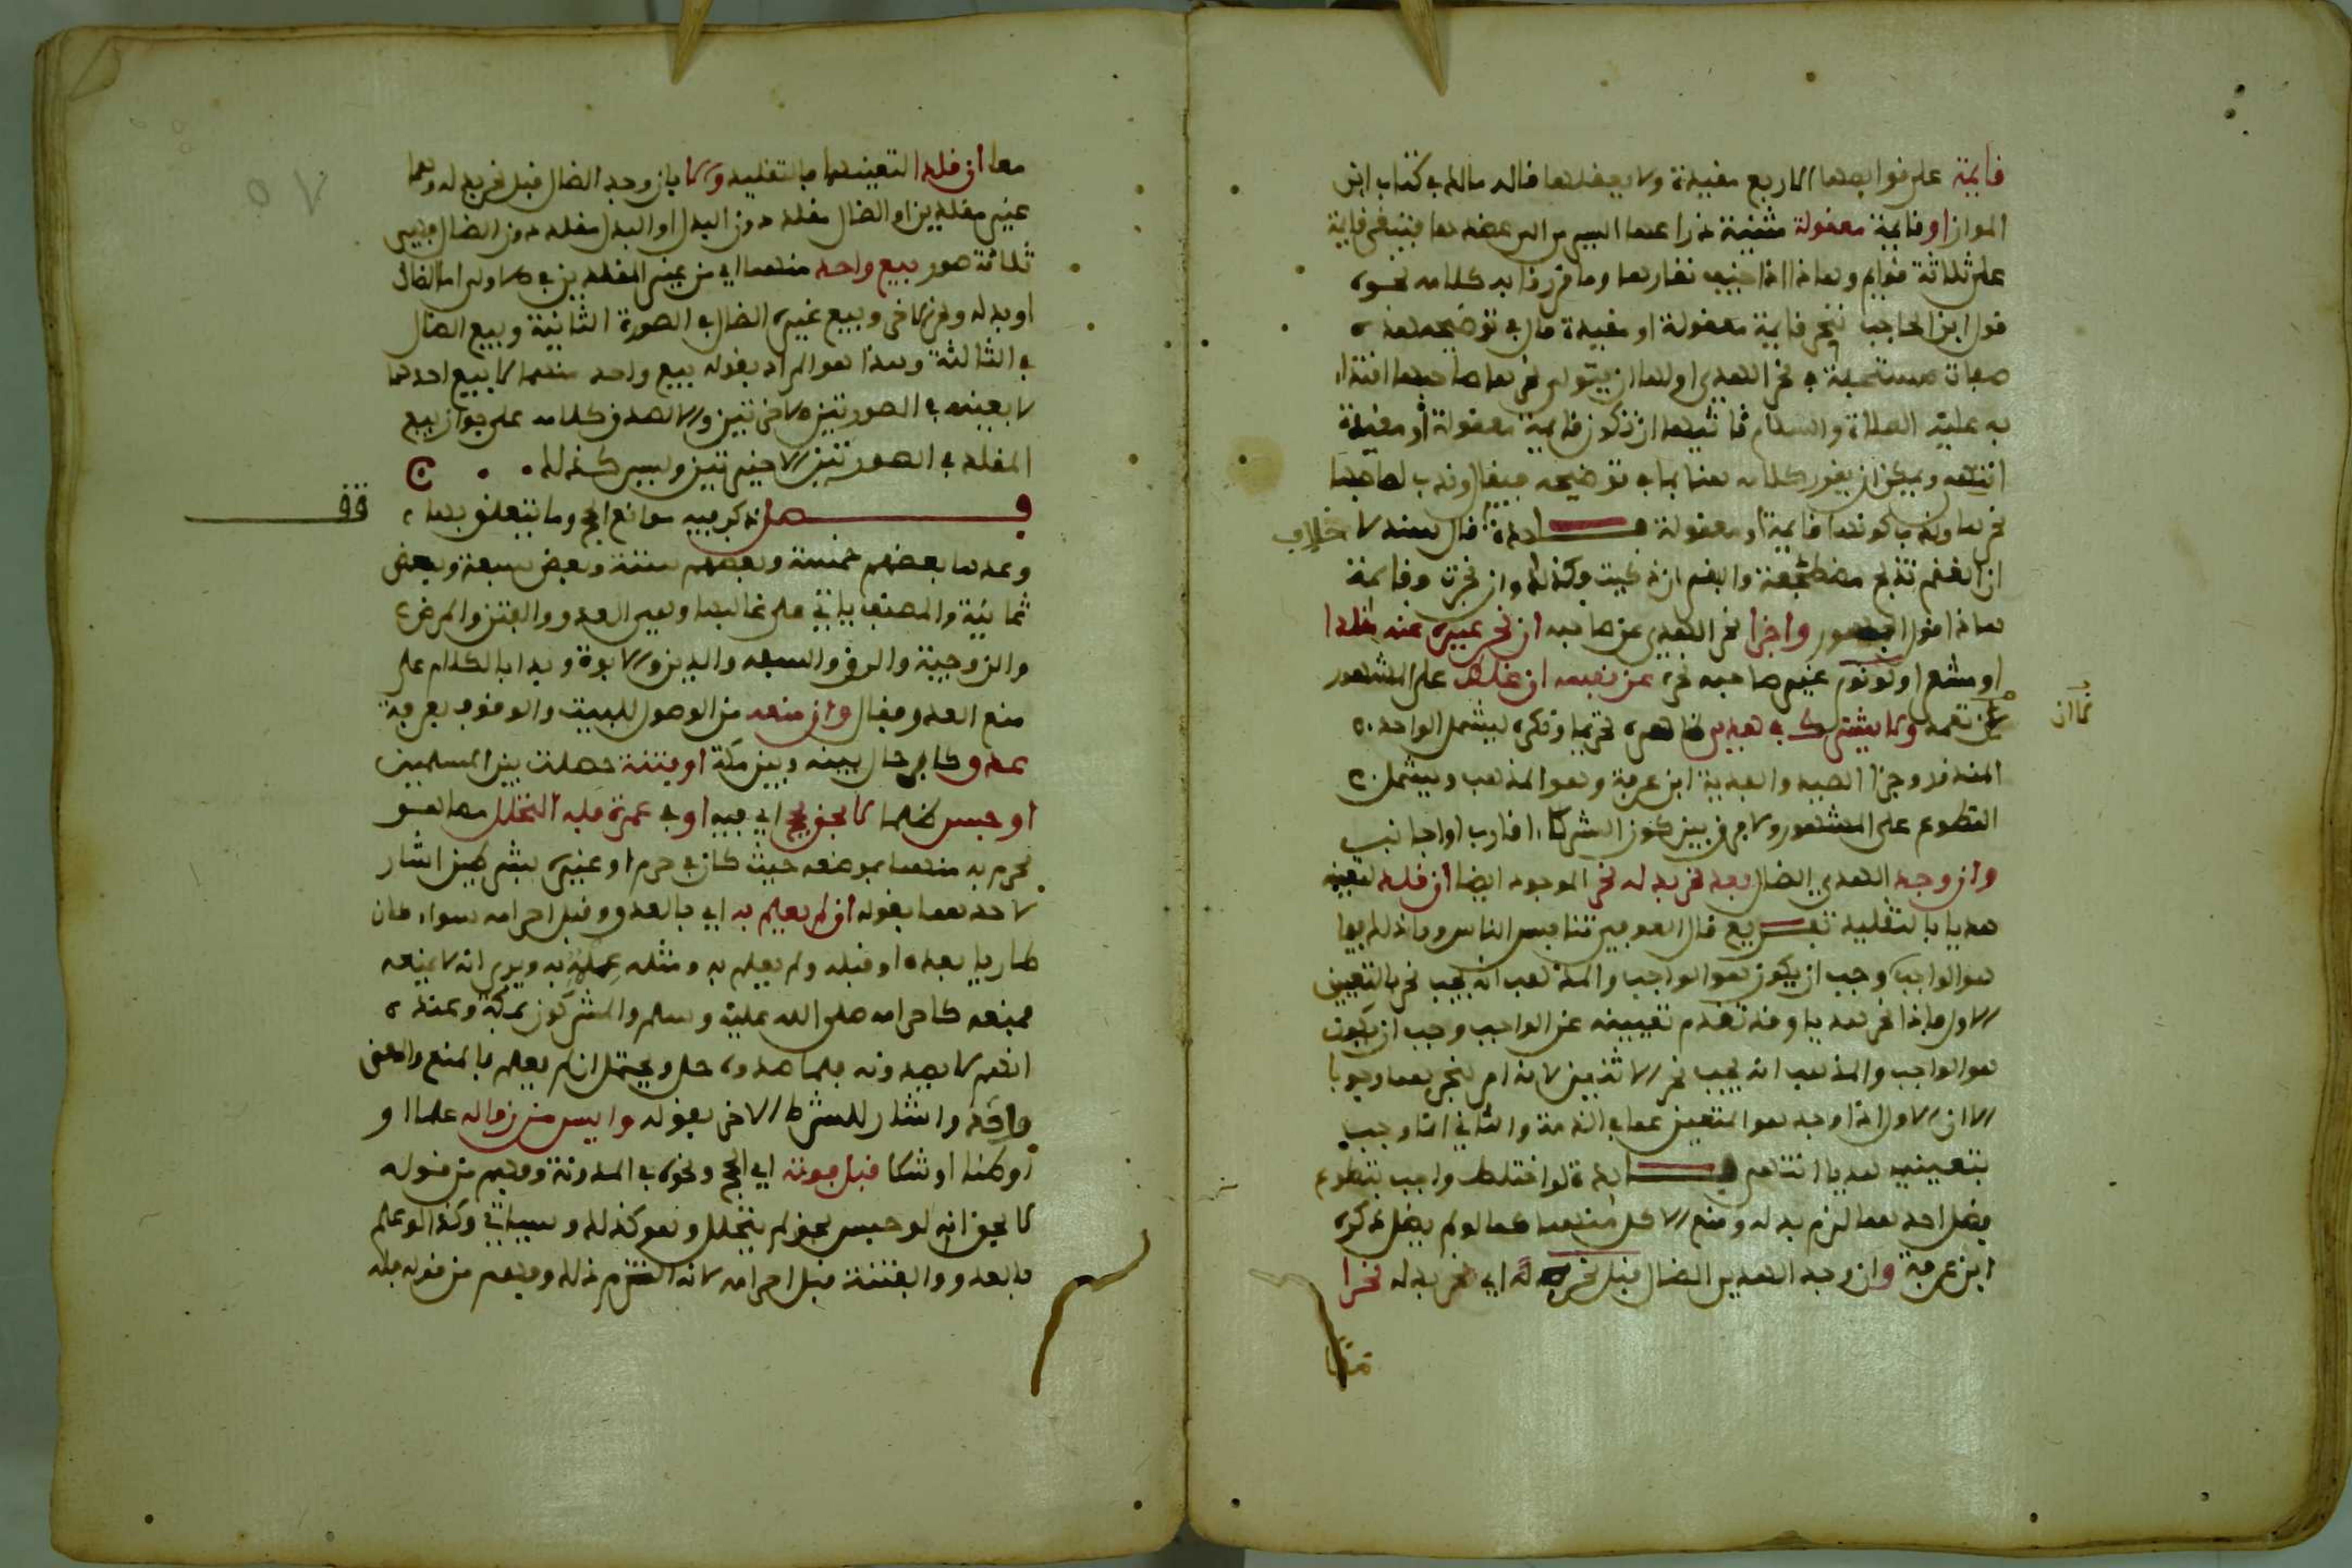 قايمة على قوايمها الاربع مقيدة ولا يعقلها قاله مالك في كتاب ابن
المواز او قايمة معقولة مثنية ذراعها اليسرى الى عضدها فتبقى قايمة
على ثلاثة قوايم وهذا اذا خيف نفارها وما قررنا به كلامه نحوه
قول ابن الحاجب تنحر قايمة معقولة او مقيدة قال في توضيحه هذه
صفات مستحبة في نحر الهدي اولها ان يتولى نحرها صاحبها اقتداء
به عليه الصلاة والسلام ثانيها ان تكون قايمة معقولة او مقيدة
انتهى ويمكن ان يقرر كلامه هنا بما في توضيحه فيقال وندب لصاحبها
نحرها وندب كونها قايمة او معقولة فايدة قال سند لا خلاف
ان الغنم تذبح مضطجعة والبقر ان ذبحت وكذلك وان نحرت وقايمة
هذا قول الجمهور واجزا نحر الهدي عن صاحبه ان نحر غيره عنه مقلدا
او مشعرا ولو نوى غير صاحبه نحره عن نفسه ان غلط على المشهور
لا ان تعمد ولا يشترك في هدي ظاهره تحريما ونكره ليشمل الواحد
المنذور وجزا الصيد والفدية ابن عرفة وهو المذهب ويشمل
التطوع على المشهور ولا فرق بين كون الشركا اقارب او اجانب
وان وجد الهدي الضال بعد نحر بدله نحر الموجود ايضا ان قلد لتعينه
هديا بالتقليد تفريع قال العوفي تنافس الناس وما ذلك فيها
هو الواجب وجب ان يكون هو الواجب والمذهب انه يجب نحر بالتعيين
الاول فاذا نحر هديا وقد تقدم تعيينه عن الواجب وجب ان يكون
هو الواجب والمذهب انه يجب نحر الاثنين لانه امر بنحرهما وجوبا
الا ان الاول اذا وجد هو المتعين عما في الذمة والثاني انما وجب
بتعيينه هديا انتهى فايدة لو اختلط واجب بتطوع
فضل احدهما لزم بدله ومنع الاكل منهما كما لو لم يضل ذكره
ابن عرفة وان وجد الهدي الضال قبل نحره اي نحر بدله نحرا
معا
معا ان قلد التعينهما بالتقليد والا بان وجد الضال قبل نحر بدله وهما
غير مقلدين او الضال مقلد دون البدل او البدل مقلد دون الضال فهي
ثلاثة صور بيع واحد منهما اي من غير المقلدين في الاولى اما الضال
او بدله ونحر الاخر وبيع غير الضال في الصورة الثانية وبيع الضال
في الثالثة وهذا هو المراد بقوله بيع واحد منهما لا بيع احدهما
لا بعينه في الصورتين الاخرتين والا لصدق كلامه على جواز بيع
المقلد في الصورتين الاخيرتين وليس كذلك
فصل نذكر فيه موانع الحج وما يتعلق بها
قف
وعدها بعضهم خمسة وبعضهم ستة وبعض سبعة وبعض
ثمانية والمصنف ياتي على غالبها وهي العدو والفتن والمرض
والزوجية والرق والسفه والدين والابوة وبدا بالكلام على
منع العدو فقال وان منعه من الوصول للبيت والوقوف بعرفة
عدو كافر حال بينه وبين مكة او فتنة حصلت بين المسلمين
او حبس ظلما لا بحق بحج اي فيه او في عمرة فله التحلل مما هو
محرم به منهما بموضعه حيث كان في حرم او غيره بشرطين اشار
لاحدهما بقوله ان لم يعلم به اي بالعدو وقبل احرامه سواء كان
طاريا بعده او قبله ولم يعلم به ومثله علمه به ويرى انه لا يمنعه
فمنعه كاحرامه صلى الله عليه وسلم والمشركون بمكة وعنده
انهم لا يصدونه فلما صدوه حل ويحتمل ان لم يعلم بالمنع والمعنى
واحد واشار للشرط الاخر بقوله وايس من زواله علما او
او ظنا او شكا قبل فوته اي الحج ونحوه في المدونة وفهم من قوله
لا بحق انه لو حبس بحق لم يتحلل وهو كذلك وسياتي وكذا لو علم
بالعدو والفتنة قبل احرامه لانه التزم ذلك وفهم من قوله فله